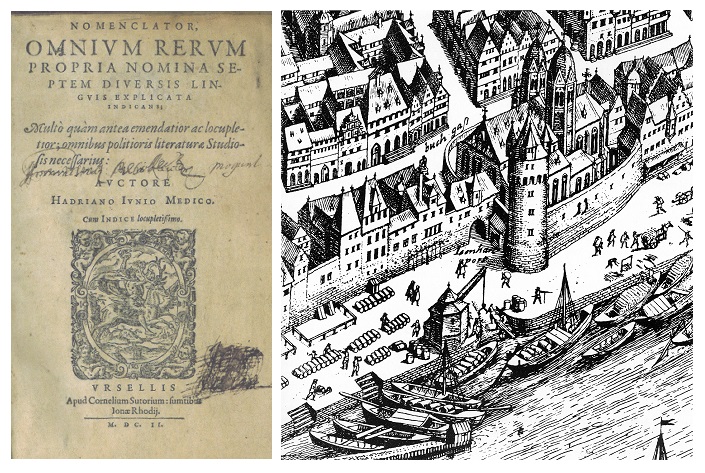 NOMENCLATOR,
OMNIVM RERVM
PROPRIA NOMINA SE-
PTEM DIVERSIS LIN-
GVIS EXPLICATA
INDICANS;
Multò quàm antea emendatior ac locuple-
tior; omnibus politioris literaturæ Studio-
sis necessarius:
AVCTORE
HADRIANO IVNIO MEDICO.
Cum INDICE locupletissimo.
VRSELLIS
Apud Cornelium Sutorium: sumtibus
Ionæ Rhodij.
M. DC. II.
buch gaß
Leonhar
port